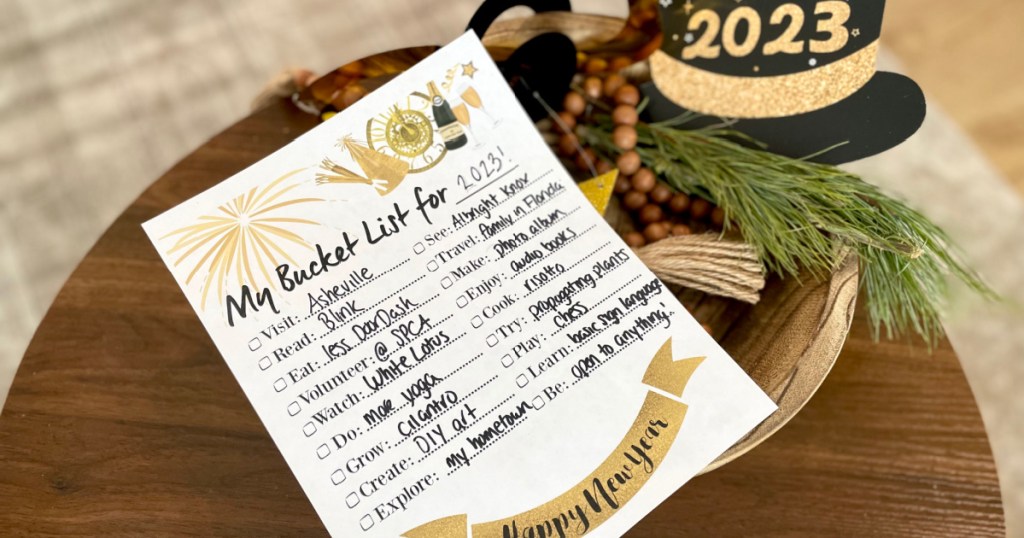 2023
My Bucket List for 2023!
Visit: Asheville
Read: Blink
Eat: less DoorDash
Volunteer: @ SPCA
Watch: White Lotus
Do: more yoga
Grow: cilantro
Create: DIY art
Explore: my hometown
See: Albright Knox
Travel: family in Florida
Make: photo album
Enjoy: audio books
Cook: risotto
Try: propagating plants
Play: chess
Learn: basic sign language
Be: open to anything!
Happy New Year